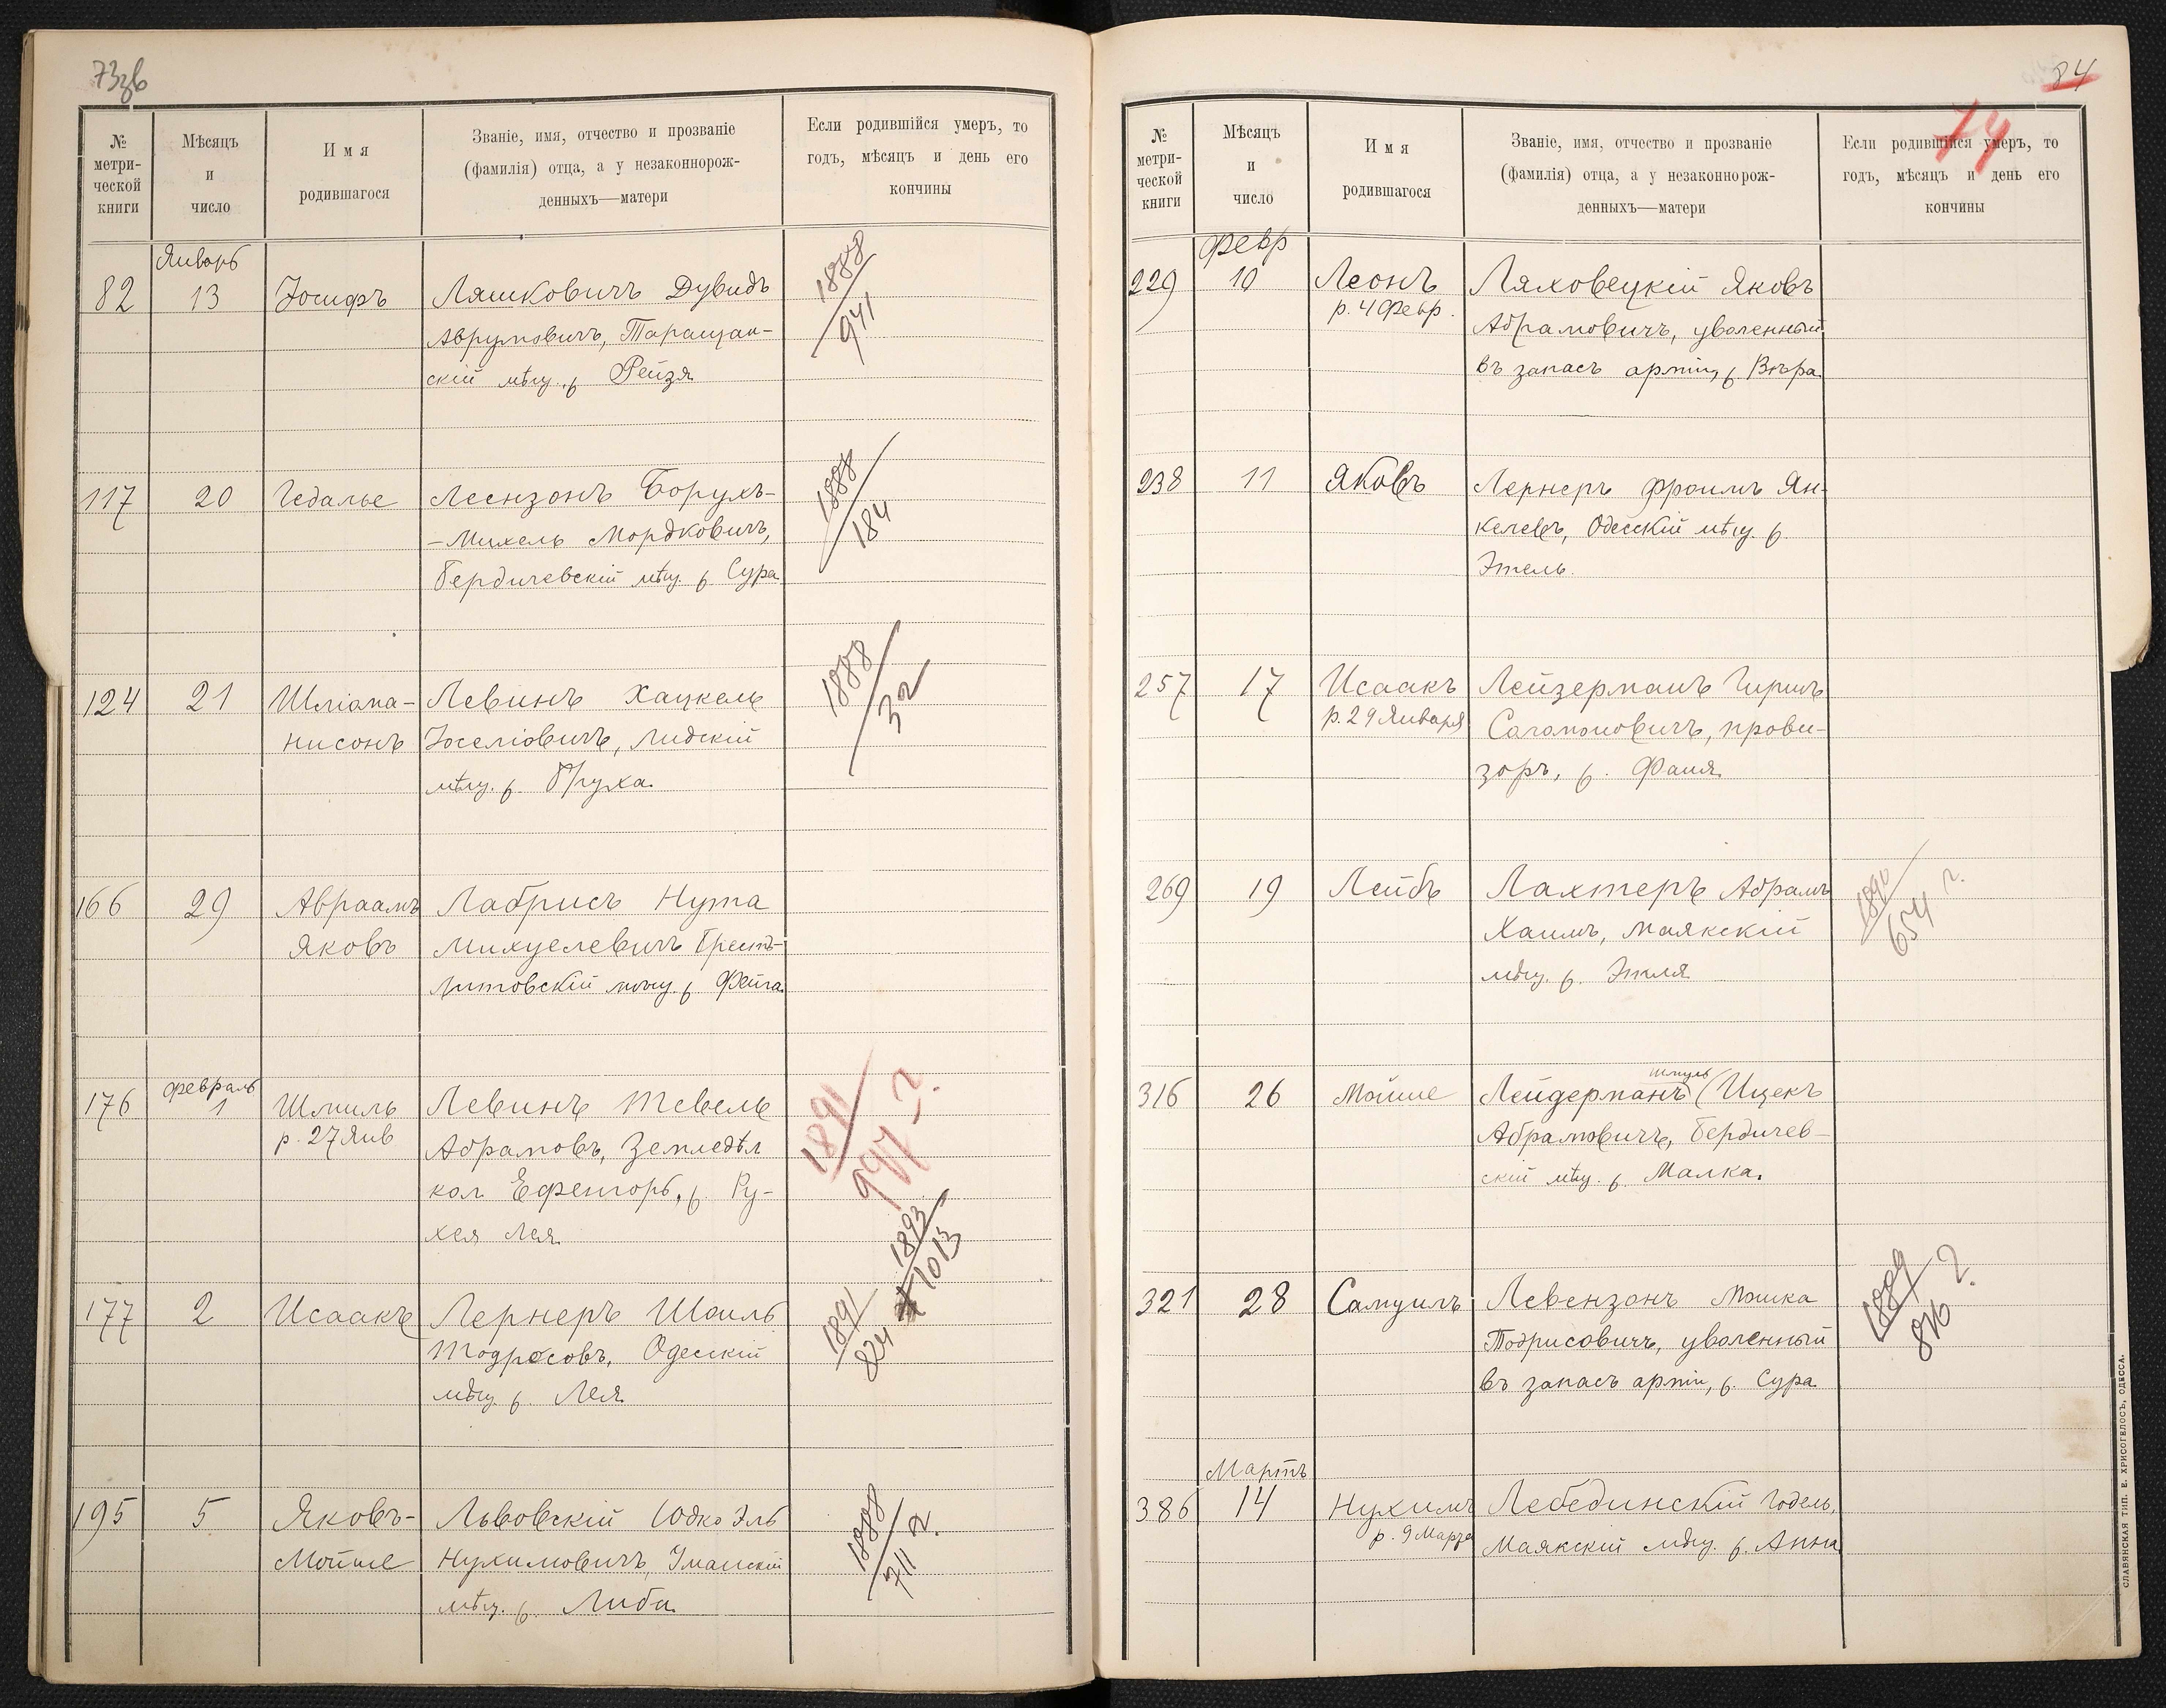 73зв
№ метрической книги
Мѣсяцъ и число
Имя родившагося
Званіе, имя, отчество и прозваніе
(фамилія) отца, а у незаконнорож-
денныхъ—матери
Если родившійся умеръ, то
годъ, мѣсяцъ и день его
кончины
Январь
82 13 Іосифъ Ляшковичъ Дувидъ 1888/941
Аврумовичъ, Таращан-
скій мѣщ., р. Рейзя
117 20 Гедалье Леензонъ Борухъ- 1888/184
-Михель Мордковичъ,
Бердичевскій мѣщ. р. Сура
124 21 Шліома- Левинъ Хацкель 1888/32
Нисонъ Іоселіовичъ, Лидскій
мѣщ. р. Бруха.
166 29 Авраамъ Лабрисъ Нута
Яковъ Михуелевичъ Брестъ-
Литовскій мѣщ. р. Фейга
Февраль
176 1 Шмиль Левинъ Тевель 1891/997 г.
р. 27 Янв Абрамовъ, Земледѣл
кол. Ефенгоръ, р. Ру-
хля Лея 1893/1013
177 2 Исаакъ Лернеръ Шоиль 1891/824
Тодросовъ, Одесскій
мѣщ. р. Лея
195 5 Яковъ- Львовскій Юдко Эль 1888/711 г.
Мойше Нухимовичъ, Уманскій
мѣщ. р. Либа
84
74
№ метрической книги
Мѣсяцъ и число
Имя родившагося
Званіе, имя, отчество и прозваніе
(фамилія) отца, а у незаконнорож-
денныхъ—матери
Если родившійся умеръ, то
годъ, мѣсяцъ и день его
кончины
Февр
229 10 Леонъ Ляховецкій Яковъ
р. 4 Февр. Абрамовичъ, уволенный
въ запасъ арміи, р. Вѣра
238 11 Яковъ Лернеръ Фроимъ Ян-
келевъ, Одесскій мѣщ. р.
Этель.
257 17 Исаакъ Лейзерманъ Гиршъ
р. 29 Января Саломоновичъ, прови-
зоръ, р. Фаня
269 19 Лейбъ Лахтеръ Абрамъ 1890/654 г.
Хаимъ, Маякскій
мѣщ. р. Этля
Шмуль
316 26 Мойше Лейдерманъ (Ицекъ
Абрамовичъ, Бердичев-
скій мѣщ. р. Малка.
321 28 Самуилъ Левензонъ Мошка 1889/816 г.
Тодрисовичъ, уволенный
въ запасъ арміи, р. Сура
Мартъ
386 14 Нухимъ Лебединскій Годель,
р. 9 Марта Маякскій мѣщ. р. Анна
СЛАВЯНСКАЯ ТИП. Е. ХРИСОГЕЛОСЪ, ОДЕССА.